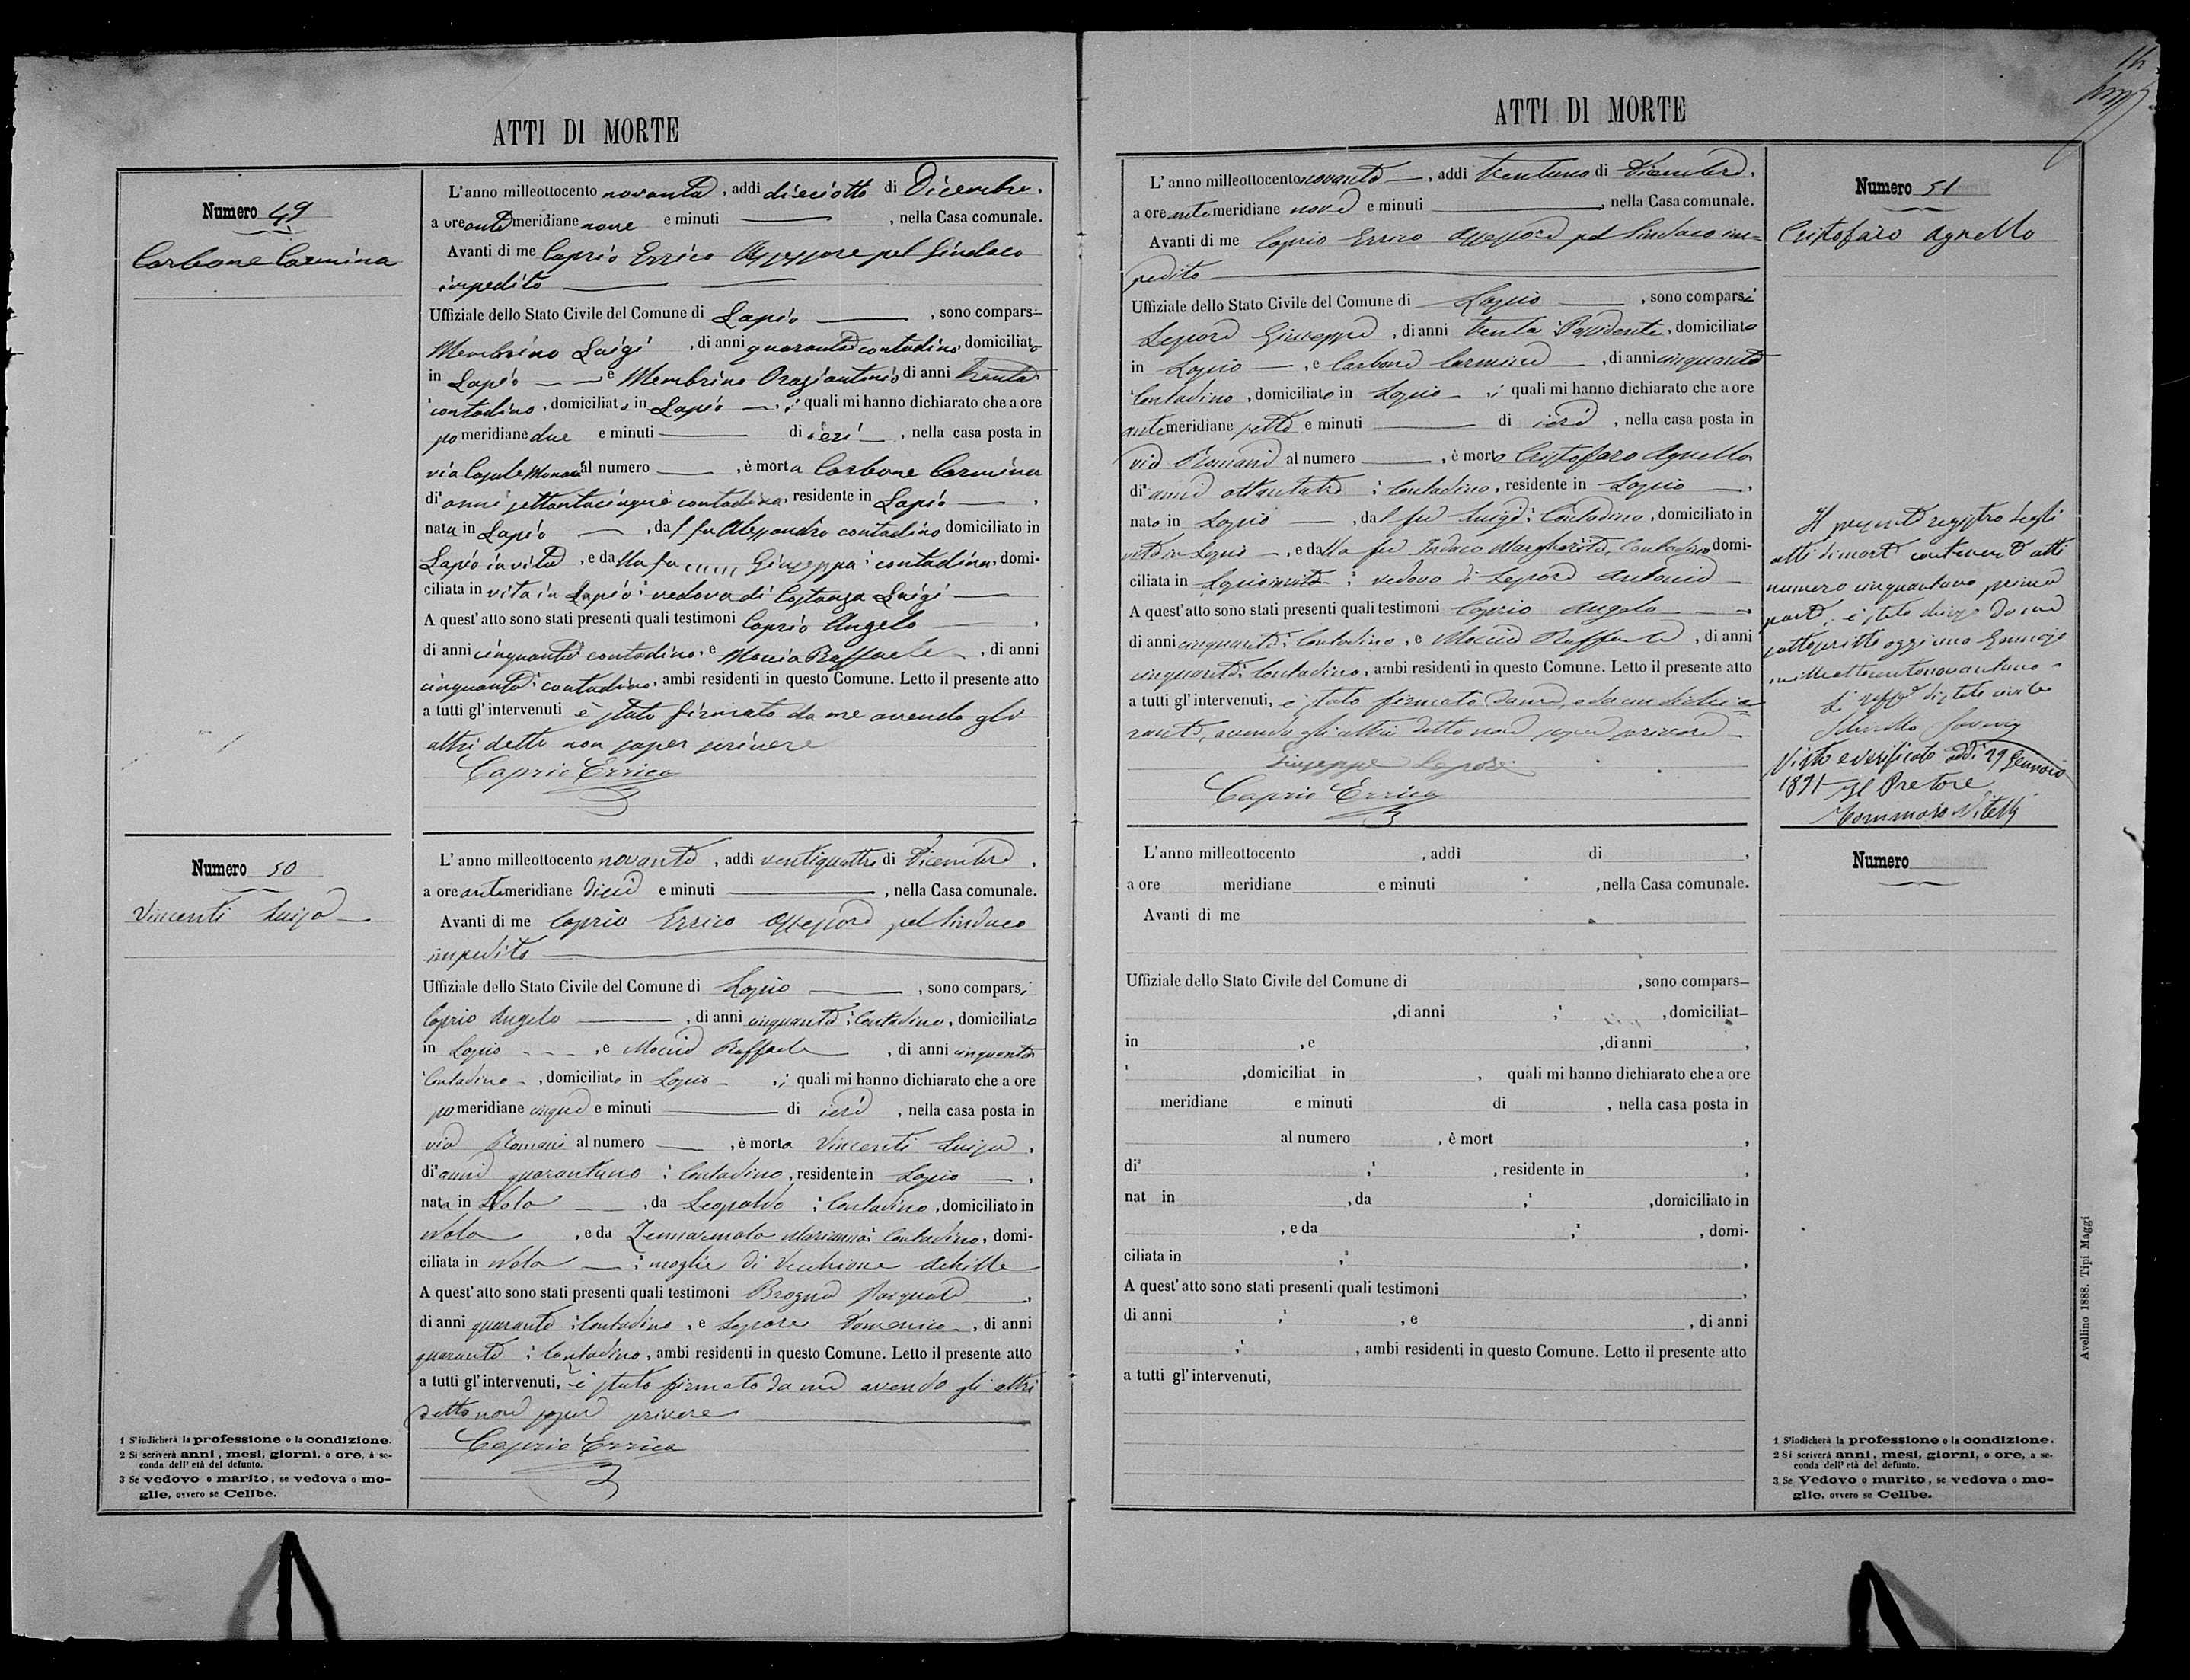 ATTI DI MORTE
Numero 49
Carbone Carmina
L'anno milleottocento novanta, addì dieciotto di Dicembre,
a ore antemeridiane nove e minuti —, nella Casa comunale.
Avanti di me Caprio Errico Assessore pel Sindaco
impedito
Uffiziale dello Stato Civile del Comune di Lapio —, sono compars
Membrino Luigi, di anni quaranta contadino, domiciliato
in Lapio — e Membrino Oraziantonio di anni trenta
contadino, domiciliato in Lapio —, i quali mi hanno dichiarato che a ore
pomeridiane due e minuti — di ieri —, nella casa posta in
via Casale al numero —, è morta Carbone Carmina
di anni settantacinque contadina, residente in Lapio —,
nata in Lapio —, dal fu Alessandro contadino domiciliato in
Lapio in vita, e dalla fu Giuseppa contadina, domi-
ciliata in vita in Lapio vedova di Costanza Luigi —
A quest'atto sono stati presenti quali testimoni Caprio Angelo —,
di anni cinquanta contadino, e Moccia Raffaele, di anni
cinquanta contadino, ambi residenti in questo Comune. Letto il presente atto
a tutti gl'intervenuti è stato firmato da me avendo gli
altri detto non saper scrivere
Caprio Errico
Numero 50
Vincenti Luisa
L'anno milleottocento novanta, addì ventiquattro di Dicembre,
a ore antemeridiane dieci e minuti —, nella Casa comunale.
Avanti di me Caprio Errico Assessore pel Sindaco
impedito
Uffiziale dello Stato Civile del Comune di Lapio —, sono comparsi
Caprio Angelo —, di anni cinquanta; Contadino, domiciliato
in Lapio —, e Moccia Raffaele, di anni cinquanta
Contadino, domiciliato in Lapio —, i quali mi hanno dichiarato che a ore
pomeridiane cinque e minuti — di ieri, nella casa posta in
via Romani al numero —, è morta Vincenti Luisa,
di anni quarantuno; Contadina, residente in Lapio —,
nata in Nola —, da Leopoldo; Contadino, domiciliato in
Nola, e da Marianna; Contadina, domi-
ciliata in Nola —; moglie di Vecchione Achille
A quest'atto sono stati presenti quali testimoni Brogna Pasquale —,
di anni quaranta; Contadino, e Lepore Domenico, di anni
quaranta; Contadino, ambi residenti in questo Comune. Letto il presente atto
a tutti gl'intervenuti, è stato firmato da me avendo gli altri
detto non saper scrivere
Caprio Errico
1 S'indicherà la professione o la condizione.
2 Si scriverà anni, mesi, giorni, o ore, a se-
conda dell'età del defunto.
3 Se vedovo o marito, se vedova o mo-
glie, ovvero se Celibe.
ATTI DI MORTE
L'anno milleottocento novanta —, addì trentuno di Dicembre,
a ore antemeridiane nove e minuti —, nella Casa comunale.
Avanti di me Caprio Errico Assessore pel Sindaco im-
pedito
Uffiziale dello Stato Civile del Comune di Lapio —, sono comparsi
Lepore Giuseppe, di anni trenta Possidente, domiciliato
in Lapio —, e Carbone Carmine —, di anni cinquanta
Contadino, domiciliato in Lapio —, i quali mi hanno dichiarato che a ore
antemeridiane sette e minuti — di ieri, nella casa posta in
via Romani al numero —, è morto Cristofaro Agnello
di anni ottantatre; Contadino, residente in Lapio —,
nato in Lapio —, dal fu Luigi; Contadino, domiciliato in
vita in Lapio —, e dalla fu Indaco Margherita, Contadina domi-
ciliata in Lapio in vita; vedovo di Lepore Antonia
A quest'atto sono stati presenti quali testimoni Caprio Angelo —
di anni cinquanta; Contadino, e Moccia Raffaele, di anni
cinquanta; Contadino, ambi residenti in questo Comune. Letto il presente atto
a tutti gl'intervenuti, è stato firmato da me, e da un dichia-
rante, avendo gli altri detto non saper scrivere
Giuseppe Lepore
Caprio Errico
Numero 51
Cristofaro Agnello
Il presente registro degli
atti di morte contenente atti
numero cinquantuno prima
parte, è stato chiuso da me
sottoscritto oggi uno Gennajo
milleottocentonovantuno
L' uffiz. di stato civile
Visto e verificato addì 29 Gennaio
1891 Il Pretore
Tommaso Vitelli
L'anno milleottocento , addì di ,
a ore meridiane e minuti , nella Casa comunale.
Avanti di me
Uffiziale dello Stato Civile del Comune di , sono compars
, di anni ; , domiciliat
in , e , di anni ,
, domiciliat in , quali mi hanno dichiarato che a ore
meridiane e minuti di , nella casa posta in
al numero , è mort ,
di ; , residente in ,
nat in , da ; , domiciliato in
, e da ; , domi-
ciliata in ; ,
A quest'atto sono stati presenti quali testimoni ,
di anni ; , e , di anni
; , ambi residenti in questo Comune. Letto il presente atto
a tutti gl'intervenuti,
Numero
1 S'indicherà la professione o la condizione.
2 Si scriverà anni, mesi, giorni, o ore, a se-
conda dell'età del defunto.
3 Se Vedovo o marito, se vedova o mo-
glie, ovvero se Celibe.
Avellino 1888. Tipi Maggi